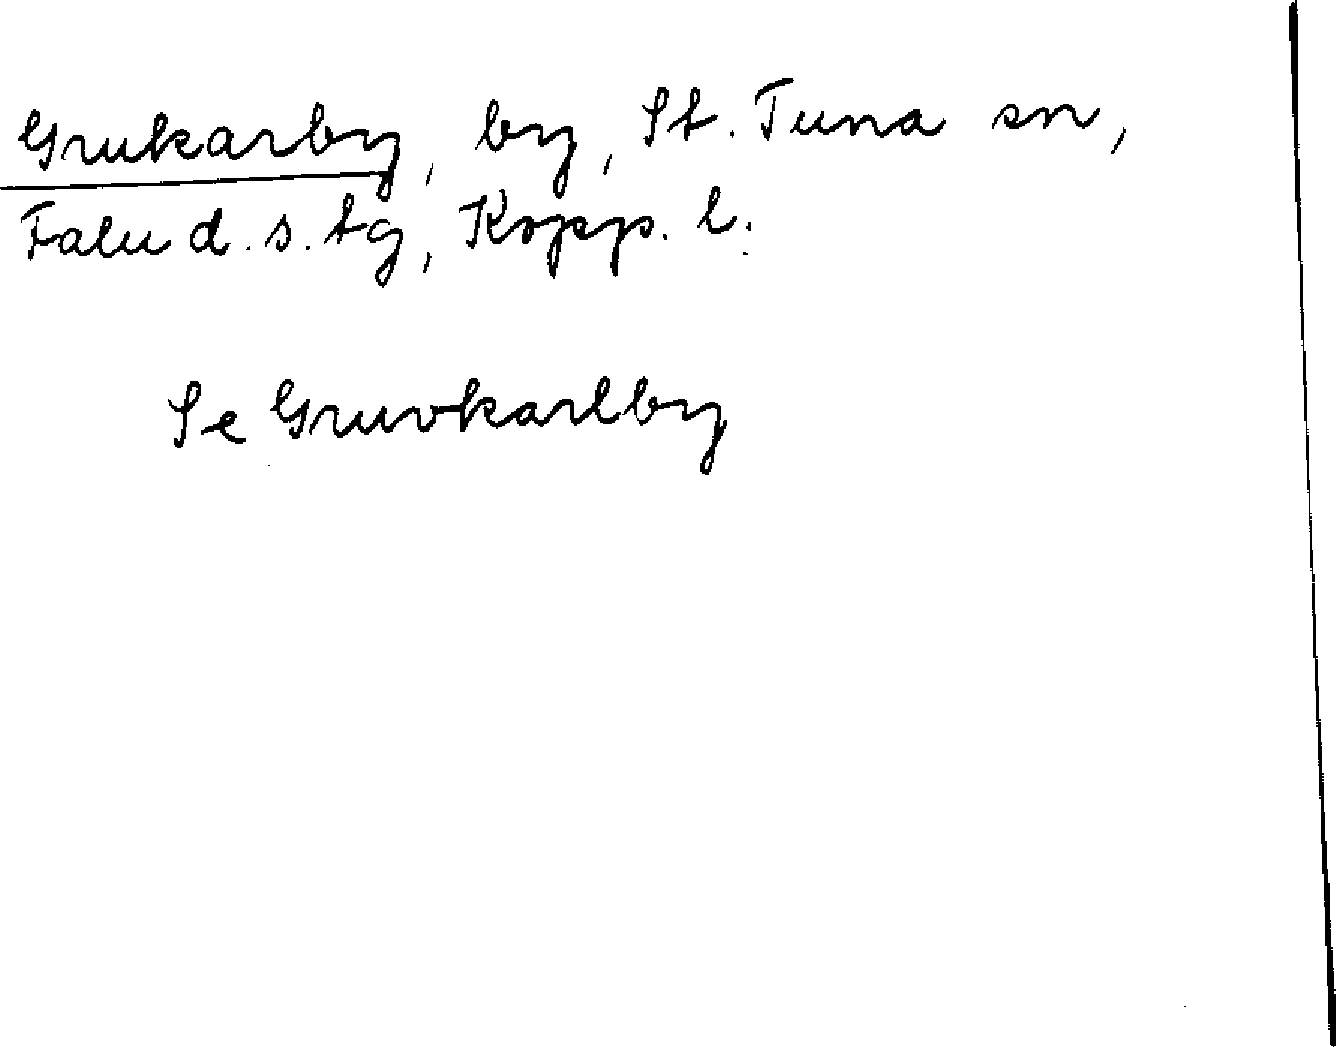 Grukarby, by, St. Tuna sn,
Falu d. s. tg, Kopp. l.
Se Gruvkarlby